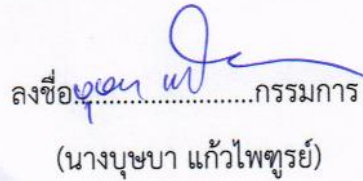 ลงชื่อ..............................กรรมการ
(นางบุษบา แก้วไพฑูรย์)